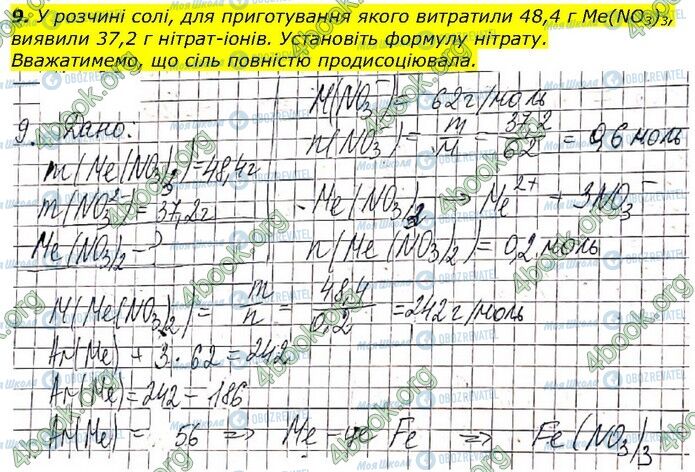 9. У розчині солі, для приготування якого витратили 48,4 г Me(NO₃)₃,
виявили 37,2 г нітрат-іонів. Установіть формулу нітрату.
Вважатимемо, що сіль повністю продисоціювала.
9. Дано:
m(Me(NO₃)₃)=48,4г
m(NO₃⁻)=37,2г
Me(NO₃)₂ - ?
M(NO₃⁻) = 62г/моль
n(NO₃⁻) = m/M = 37,2/62 = 0,6 моль
Me(NO₃)₂ → Me²⁺ + 3NO₃⁻
n(Me(NO₃)₂) = 0,2 моль
M(Me(NO₃)₂) = m/n = 48,4/0,2 = 242 г/моль
Ar(Me) + 3·62 = 242
Ar(Me) = 242 - 186
Ar(Me) = 56 ⇒ Me - це Fe ⇒ Fe(NO₃)₃
4book.org
Моя Школа
OBOZREVATEL